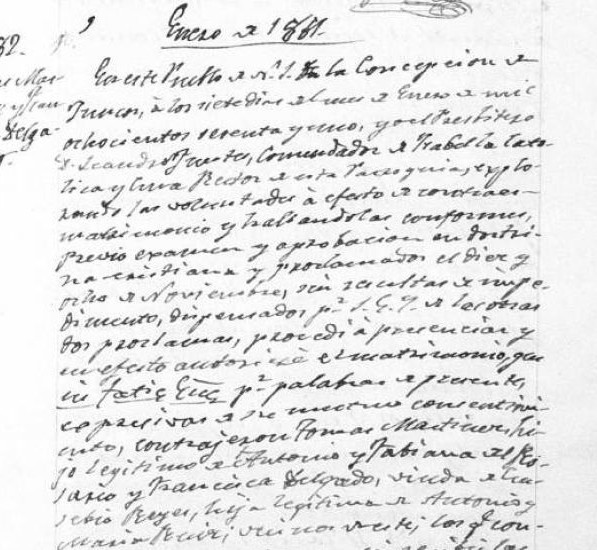 Enero de 1861.
En este Pueblo de N. S. de la Concepcion de
Juncos, à los siete dias del mes de Enero de mil
ochocientos sesenta y uno, yo el Presbitero
D. Leandro Fuste, Comendador de Isabel la Cato-
lica y Cura Rector de esta Parroquia, explo-
rando las voluntades à efecto de contraer
matrimonio y hallandolas conformes,
previo examen y aprobacion en doctri-
na cristiana y proclamados el diez y
ocho de Noviembre, sin resultas de impe-
dimento, dispensados pr. S. E. I. de las otras
dos proclamas, procedi à presenciar y
en efecto autoricé el matrimonio, que
in facie Ecc. pr. palabras de presente,
expresivas de su mutuo consentimi-
ento, contrajeron Tomas Martinez, hi-
jo legitimo de Antonio y Fabiana del Ro-
sario y Francisca Delgado, viuda de Eu-
sebio Reyes, hija legitima de Antonio y
Maria